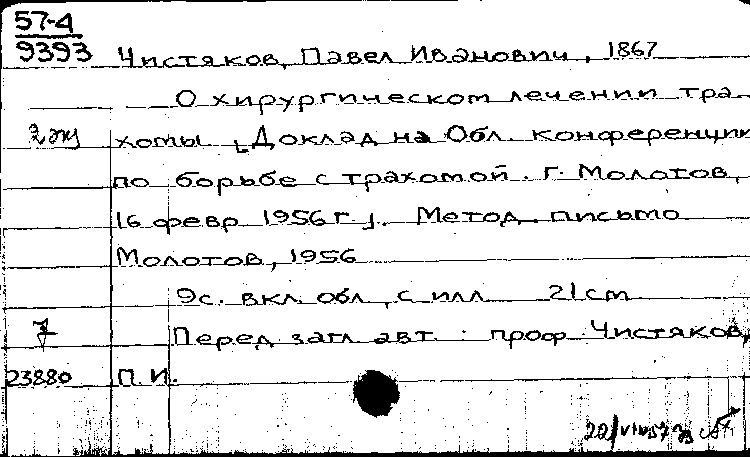 57-4
9393 Чистяков, Павел Иванович, 1867
О хирургическом лечении тра-
2 эк хомы [Доклад на Обл. конференции
по борьбе с трахомой. г. Молотов,
16 февр 1956 г.]. Метод. письмо
Молотов, 1956
9с. вкл. обл., с илл 21 cm
Перед загл. авт.: проф. Чистяков,
23880 П.И.